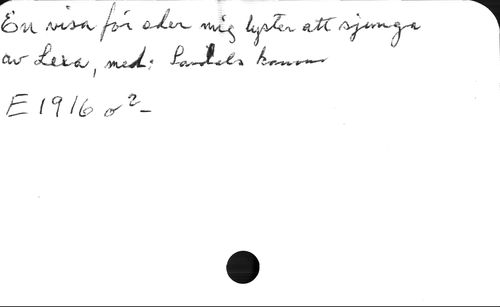 En visa för eder mig lyster att sjunga
av Lexa, med: Sandels
E 1916 o² –